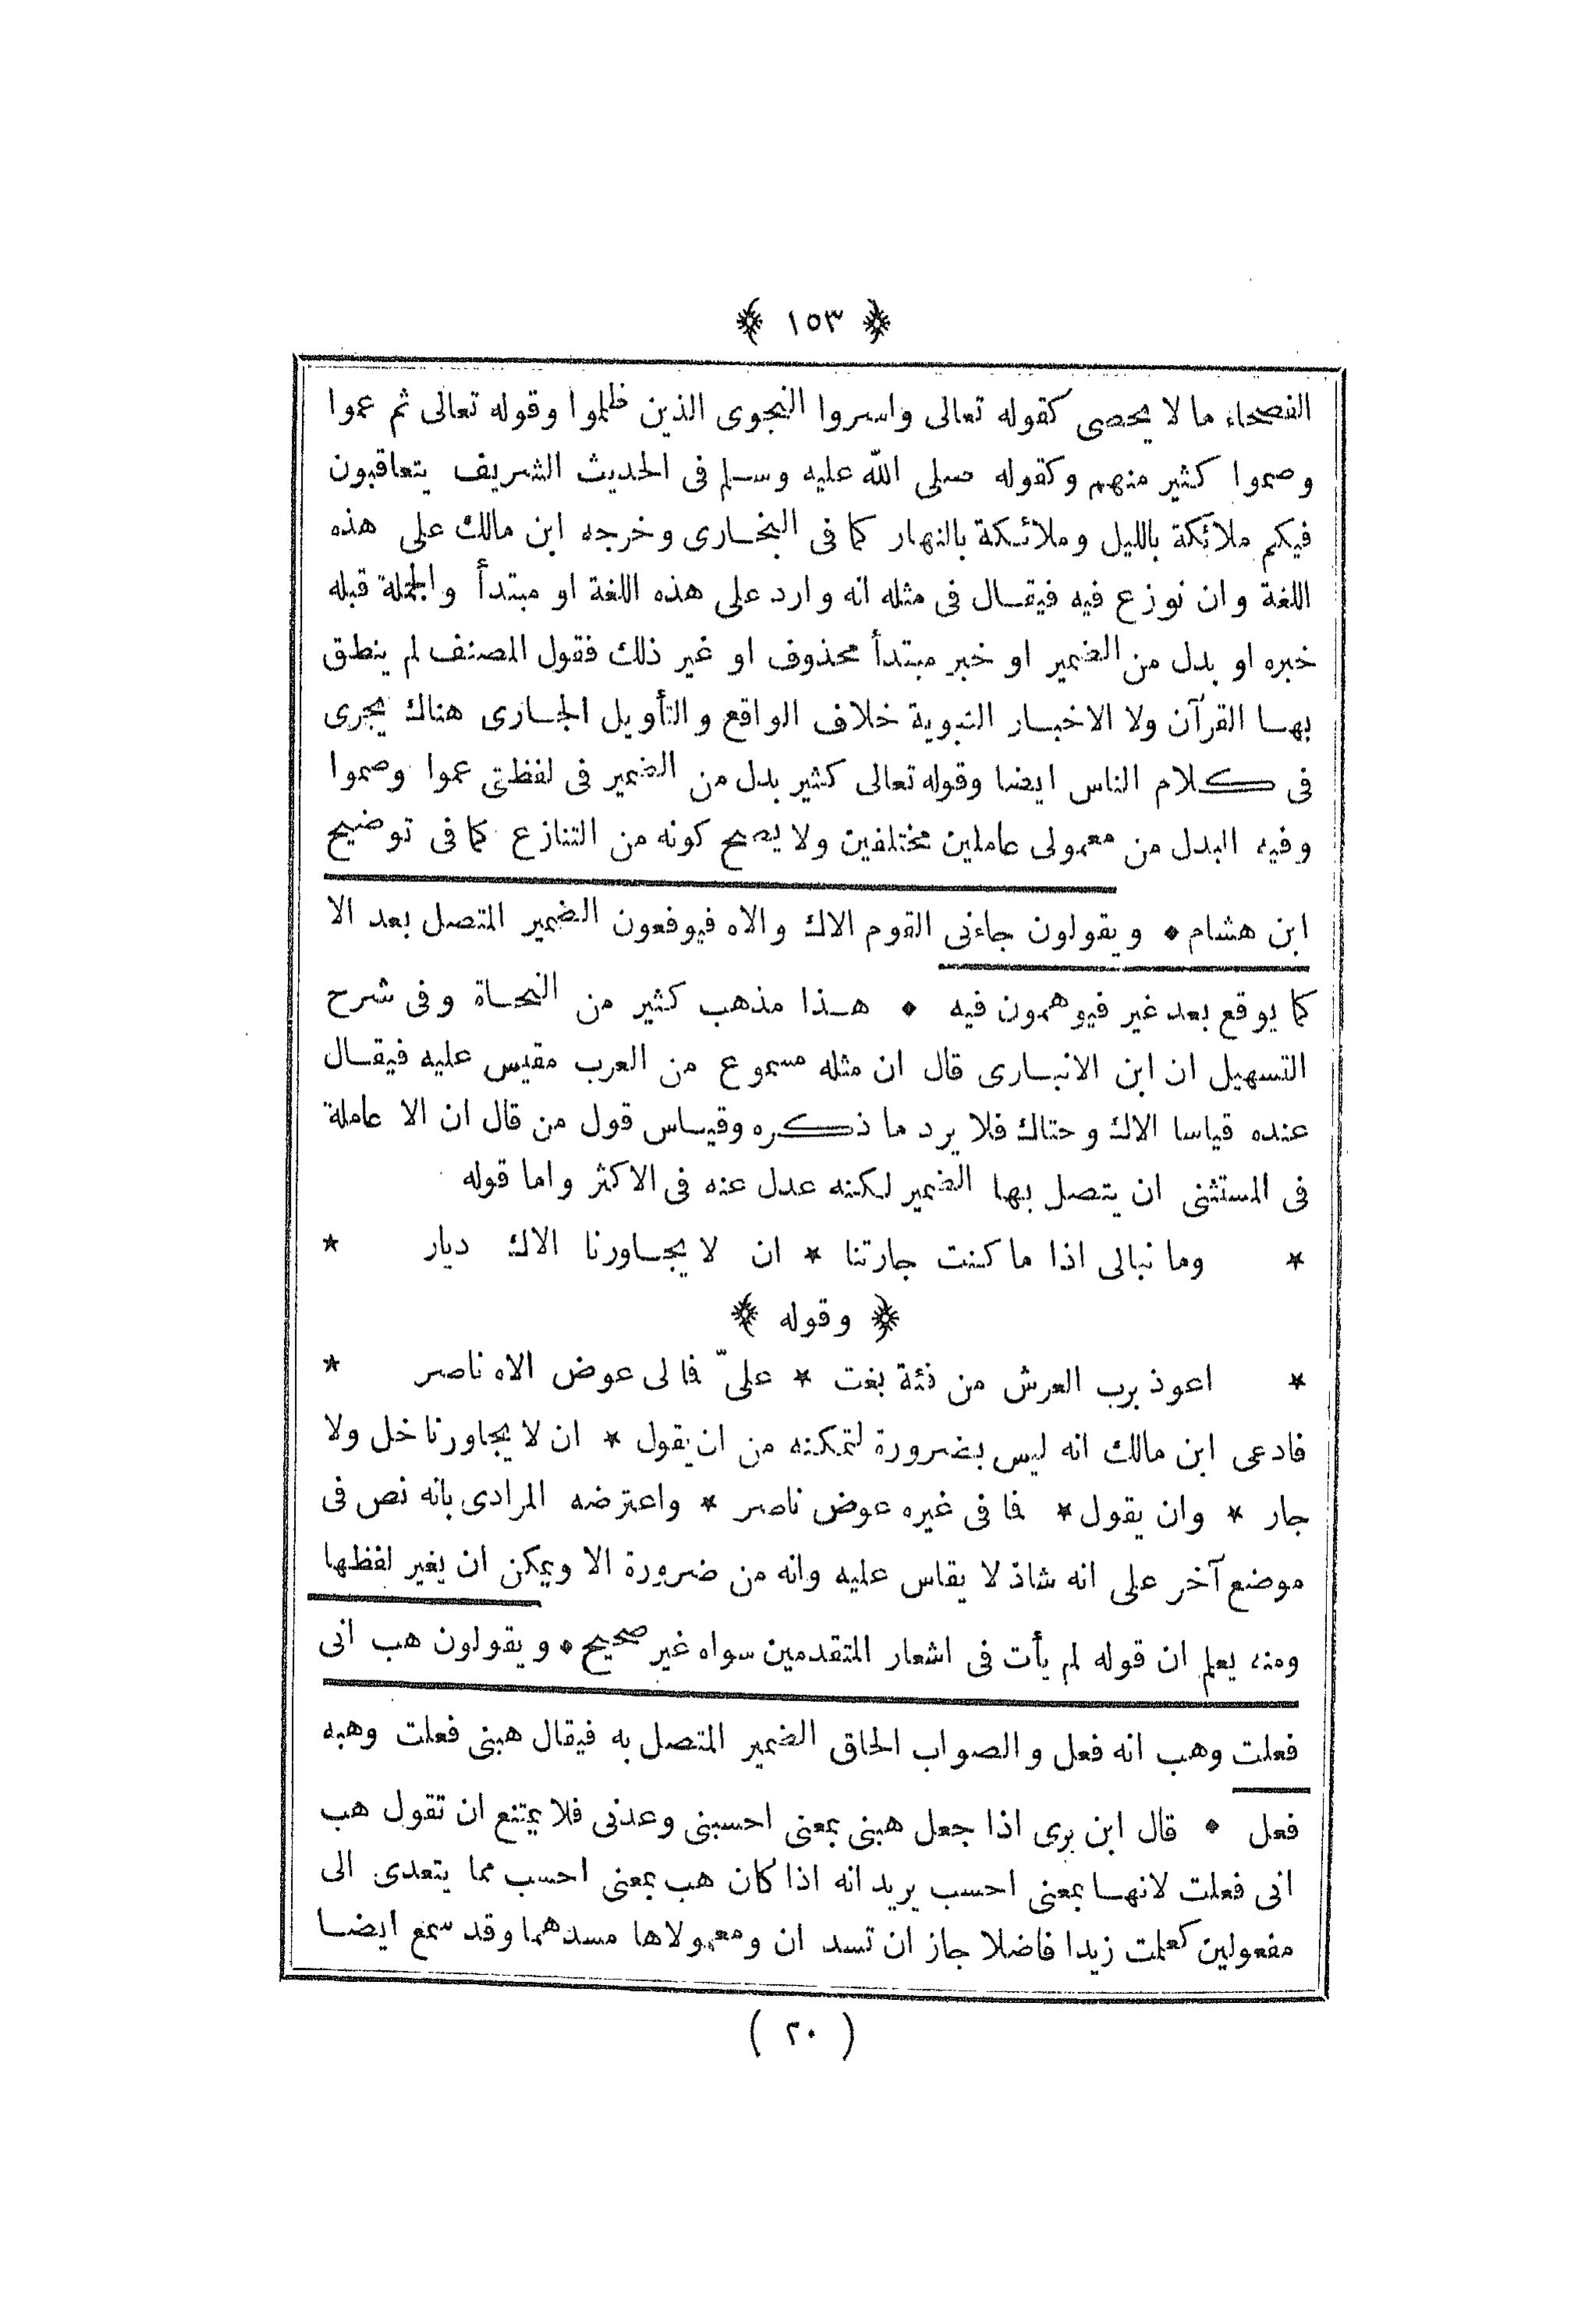 ﴿ ١٥٣ ﴾
الفصحاء ما لا يحصى كقوله تعالى واسروا النجوى الذين ظلموا وقوله تعالى ثم عموا
وصموا كثير منهم وكقوله صلى الله عليه وسلم فى الحديث الشريف يتعاقبون
فيكم ملائكة بالليل وملائكة بالنهار كما فى البخارى وخرجه ابن مالك على هذه
اللغة وان نوزع فيه فيقال فى مثله انه وارد على هذه اللغة او مبتدأ والجملة قبله
خبره او بدل من الضمير او خبر مبتدأ محذوف او غير ذلك فقول المصنف لم ينطق
بها القرآن ولا الاخبار النبوية خلاف الواقع والتأويل الجارى هناك يجرى
فى كلام الناس ايضا وقوله تعالى كثير بدل من الضمير فى لفظتى عموا وصموا
وفيه البدل من معمولى عاملين مختلفين ولا يصح كونه من التنازع كما فى توضيح
ابن هشام * ويقولون جاءنى القوم الاك والاه فيوقعون الضمير المتصل بعد الا
كما يوقع بعد غير فيوهمون فيه * هذا مذهب كثير من النحاة وفى شرح
التسهيل ان ابن الانبارى قال ان مثله مسموع من العرب مقيس عليه فيقال
عنده قياسا الاك وحتاك فلا يرد ما ذكره وقياس قول من قال ان الا عاملة
فى المستثنى ان يتصل بها الضمير لكنه عدل عنه فى الاكثر واما قوله
* وما نبالى اذا ما كنت جارتنا * ان لا يجاورنا الاك ديار *
﴿ وقوله ﴾
* اعوذ برب العرش من فئة بغت * علىّ فما لى عوض الاه ناصر *
فادعى ابن مالك انه ليس بضرورة لتمكنه من ان يقول * ان لا يجاورنا خل ولا
جار * وان يقول * فما فى غيره عوض ناصر * واعترضه المرادى بانه نص فى
موضع آخر على انه شاذ لا يقاس عليه وانه من ضرورة الا ويمكن ان يغير لفظها
ومنه يعلم ان قوله لم يأت فى اشعار المتقدمين سواه غير صحيح * ويقولون هب انى
فعلت وهب انه فعل والصواب الحاق الضمير المتصل به فيقال هبنى فعلت وهبه
فعل * قال ابن برى اذا جعل هبنى بمعنى احسبنى وعدنى فلا يمتنع ان تقول هب
انى فعلت لانها بمعنى احسب يريد انه اذا كان هب بمعنى احسب مما يتعدى الى
مفعولين كعلمت زيدا فاضلا جاز ان تسد ان ومعمولاها مسدهما وقد سمع ايضا
( ٢٠ )